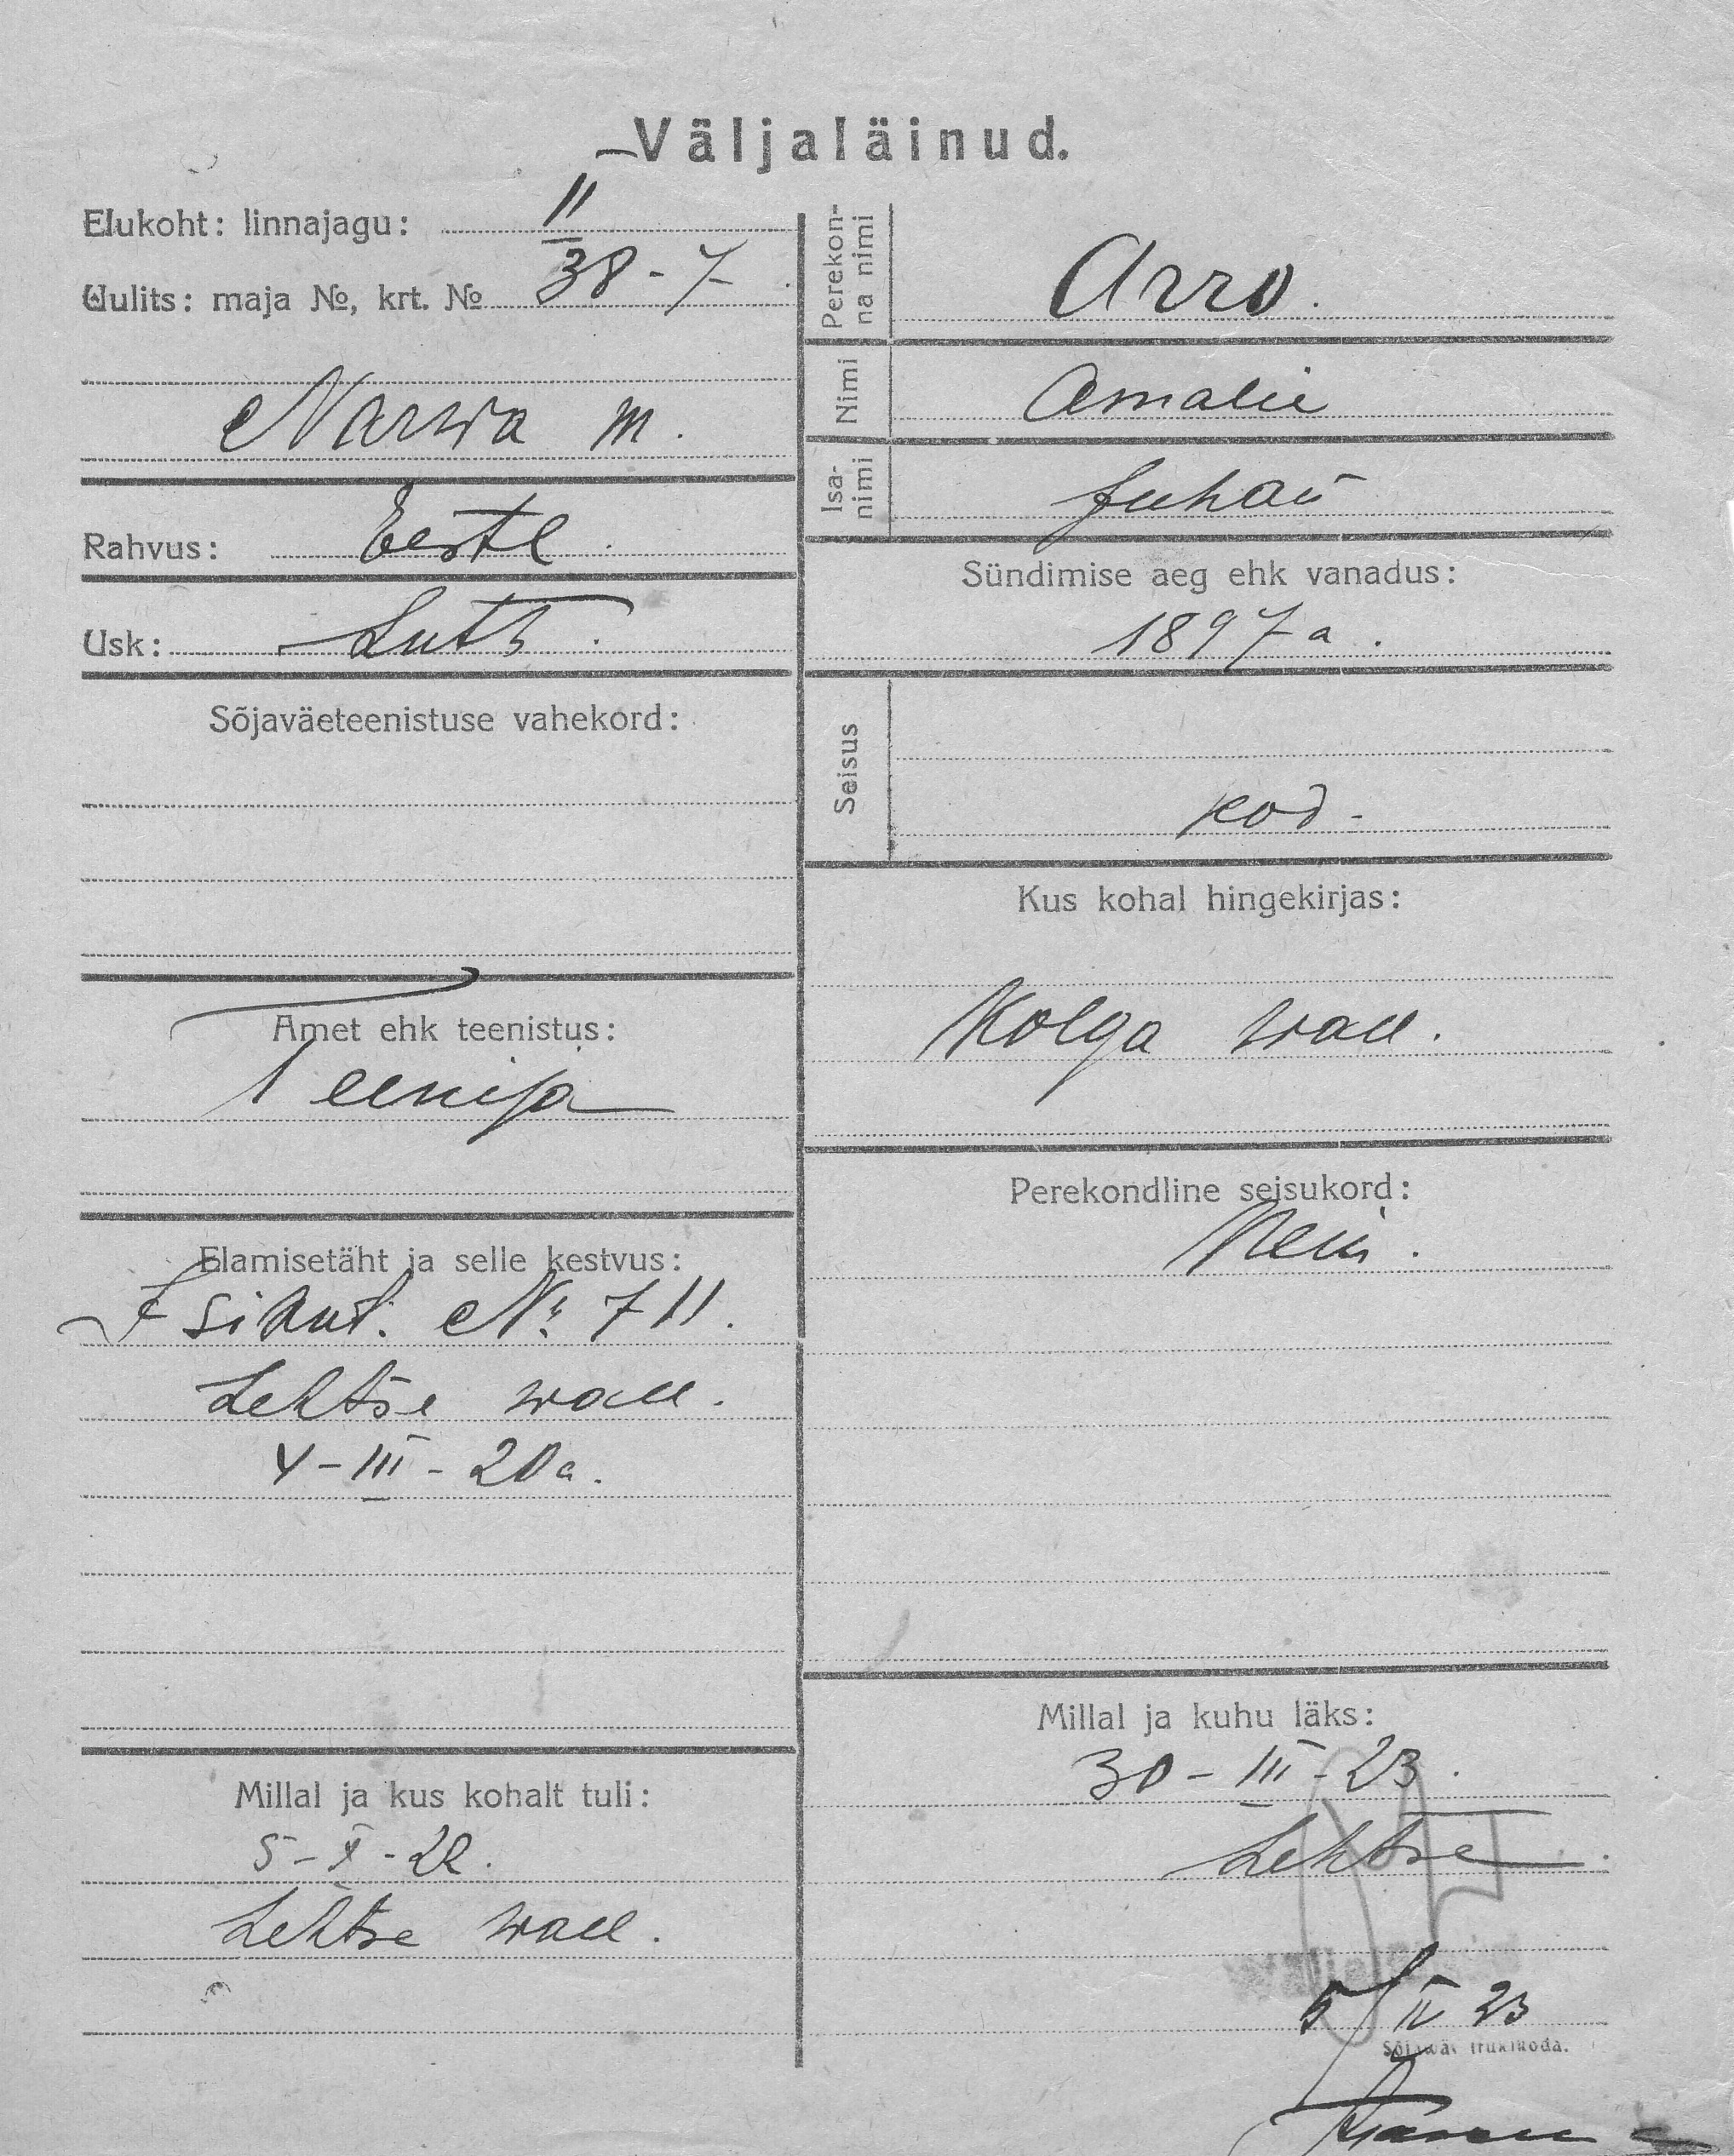 Väljaläinud.
Elukoht: linnajagu: II
Uulits: maja №, krt. № 38-7
Narwa m.
Rahvus: Eestl.
Usk: Lutr.
Sõjaväeteenistuse vahekord:
Amet ehk teenistus:
Teenija
Elamisetäht ja selle kestvus:
Isikut. № 711.
Lehtse wall.
4-III-20a.
Millal ja kus kohalt tuli:
5-X-22.
Lehtse wall.
Perekonna nimi Arro.
Nimi Amalie
Isanimi Juhan
Sündimise aeg ehk vanadus:
1897a.
Seisus
kod-
Kus kohal hingekirjas:
Kolga wall.
Perekondline seisukord:
Neiu.
Millal ja kuhu läks:
30-III-23.
Lehtse.
5/IV 23
trükikoda.